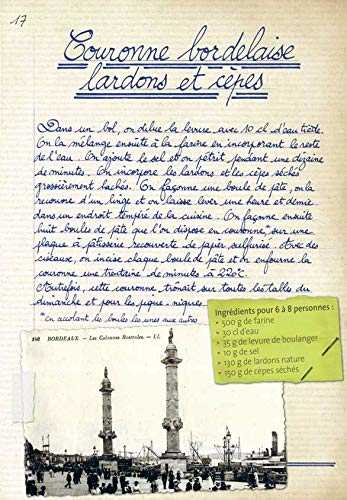 17
Couronne bordelaise
lardons et cèpes
Dans un bol, on délue la levure avec 10 cl d'eau tiède.
On la mélange ensuite à la farine en incorporant le reste
de l'eau. On ajoute le sel et on pétrit pendant une dizaine
de minutes. On incorpore les lardons et les cèpes séchés
grossièrement hachés. On façonne une boule de pâte, on la
recouvre d'un linge et on laisse lever une heure et demie
dans un endroit tempéré de la cuisine. On façonne ensuite
huit boules de pâte que l'on dispose en couronne* sur une
plaque à pâtisserie recouverte de papier sulfurisé. Avec des
ciseaux, on incise chaque boule de pâte et on enfourne la
couronne une trentaine de minutes à 220°C
Autrefois, cette couronne trônait sur toutes les tables du
dimanche et pour les pique-niques.
*En accolant les boules les unes aux autres
Ingrédients pour 6 à 8 personnes :
• 500 g de farine
• 30 cl d'eau
• 35 g de levure de boulanger
• 10 g de sel
• 130 g de lardons nature
• 150 g de cèpes séchés
BORDEAUX. — Les Colonnes Rostrales. — LL